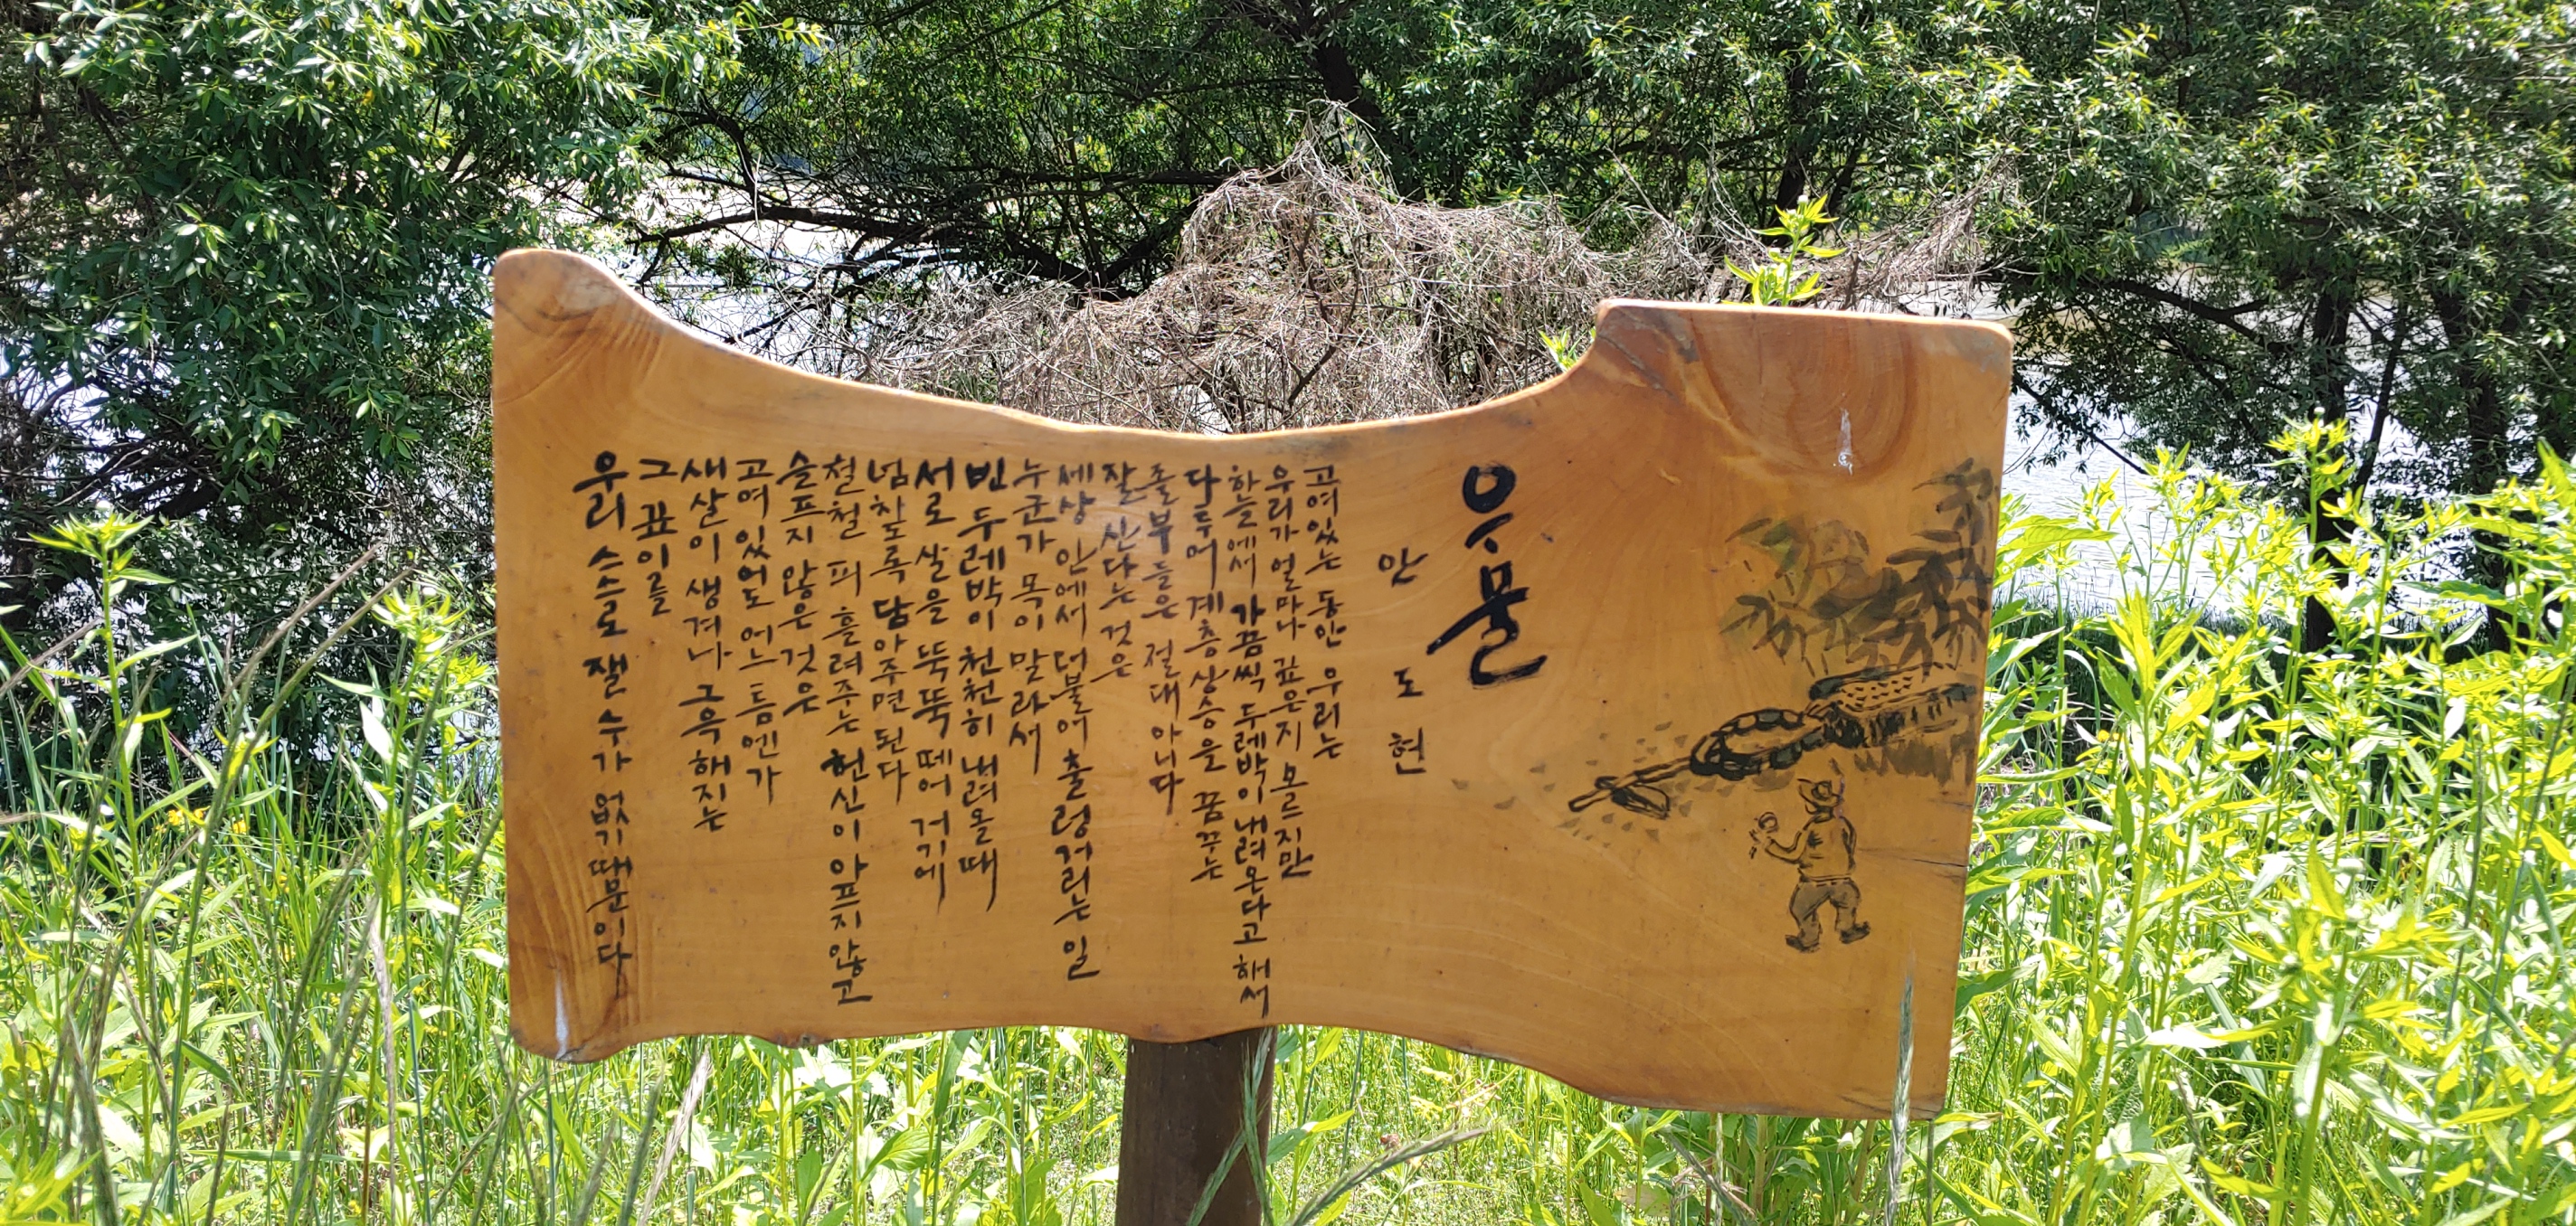 우물
안도현
고여있는 동안 우리는
우리가 얼마나 깊은지 모르지만
하늘에서 가끔씩 두레박이 내려온다고 해서
다투어 계층상승을 꿈꾸는
졸부들은 절대 아니다
잘 산다는 것은
세상 안에서 더불어 출렁거리는 일
누군가 목이 말라서
빈 두레박이 천천히 내려올 때
서로 살을 뚝뚝 떼어 거기에
넘찰도록 담아주면 된다
철철 피 흘려주는 헌신이 아프지 않고
슬프지 않은 것은
고여 있어도 어느 틈엔가
새살이 생겨나 그윽해지는
그 깊이를
우리 스스로 잴 수가 없기 때문이다